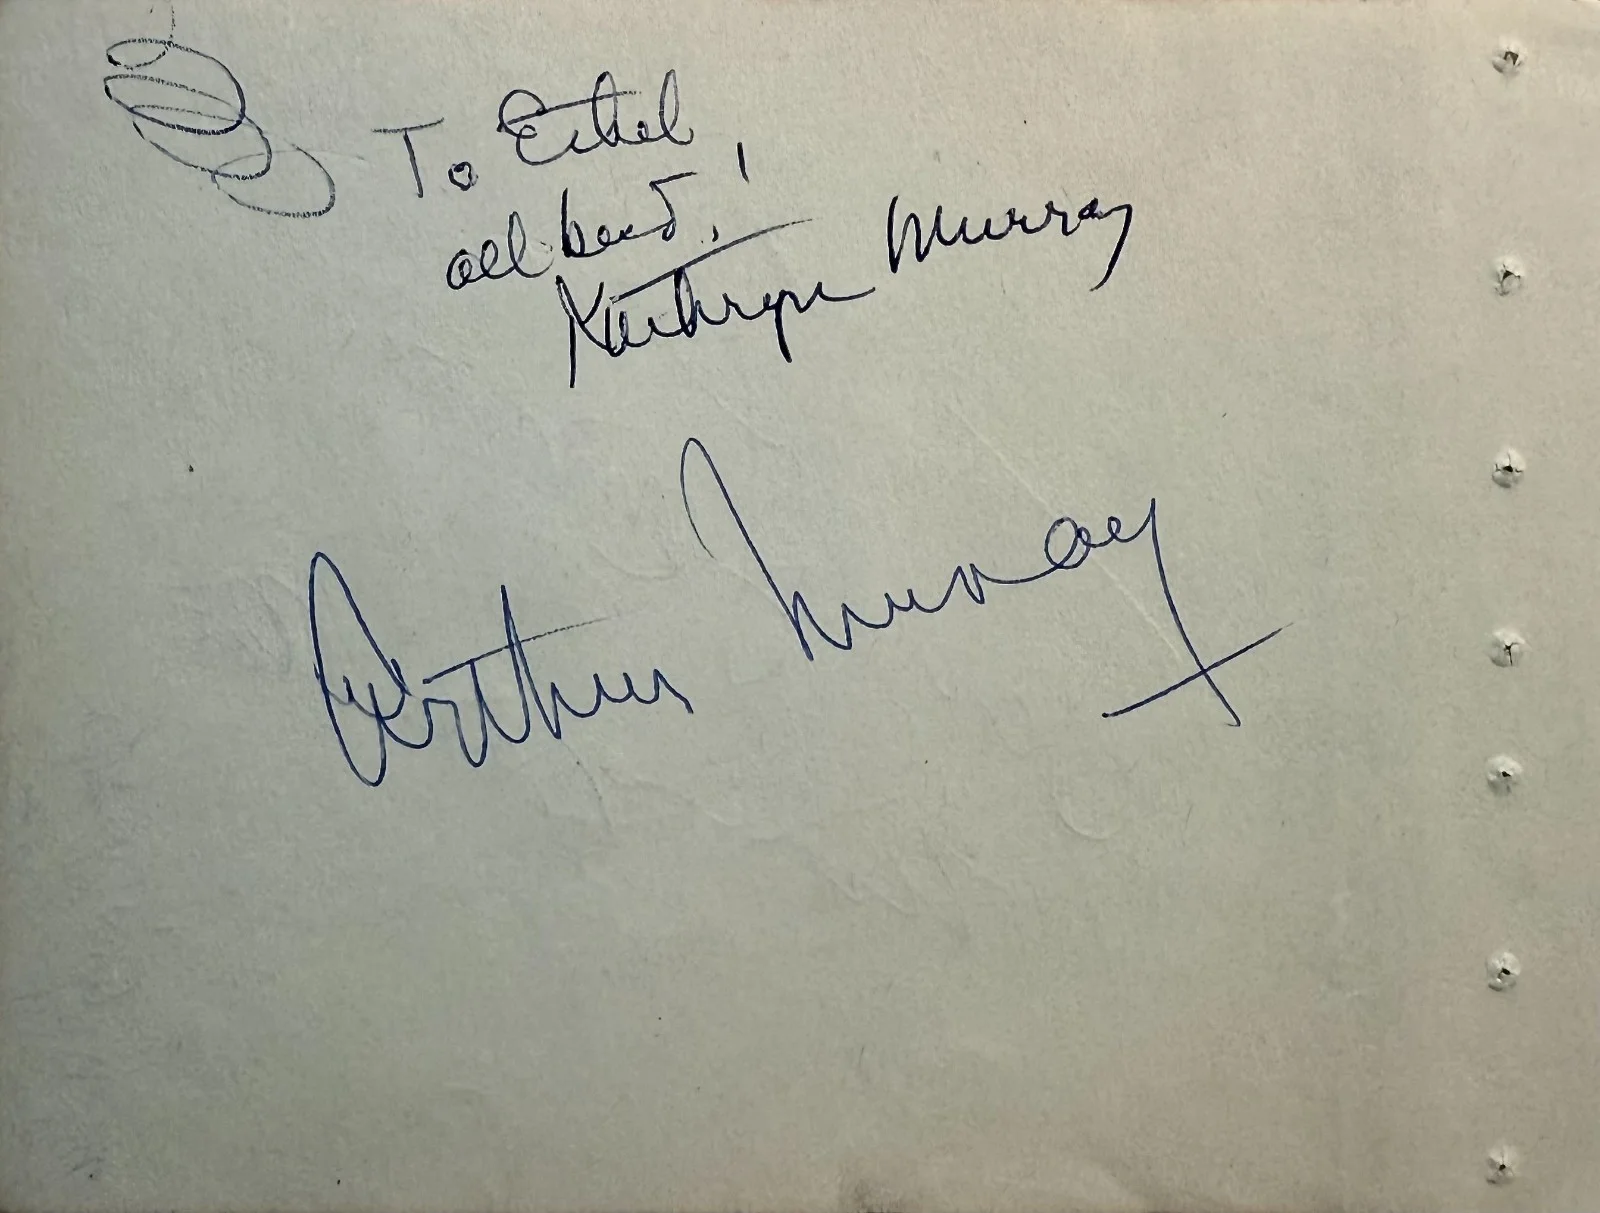 To Ethel
all best!
Kathryn Murray
Arthur Murray